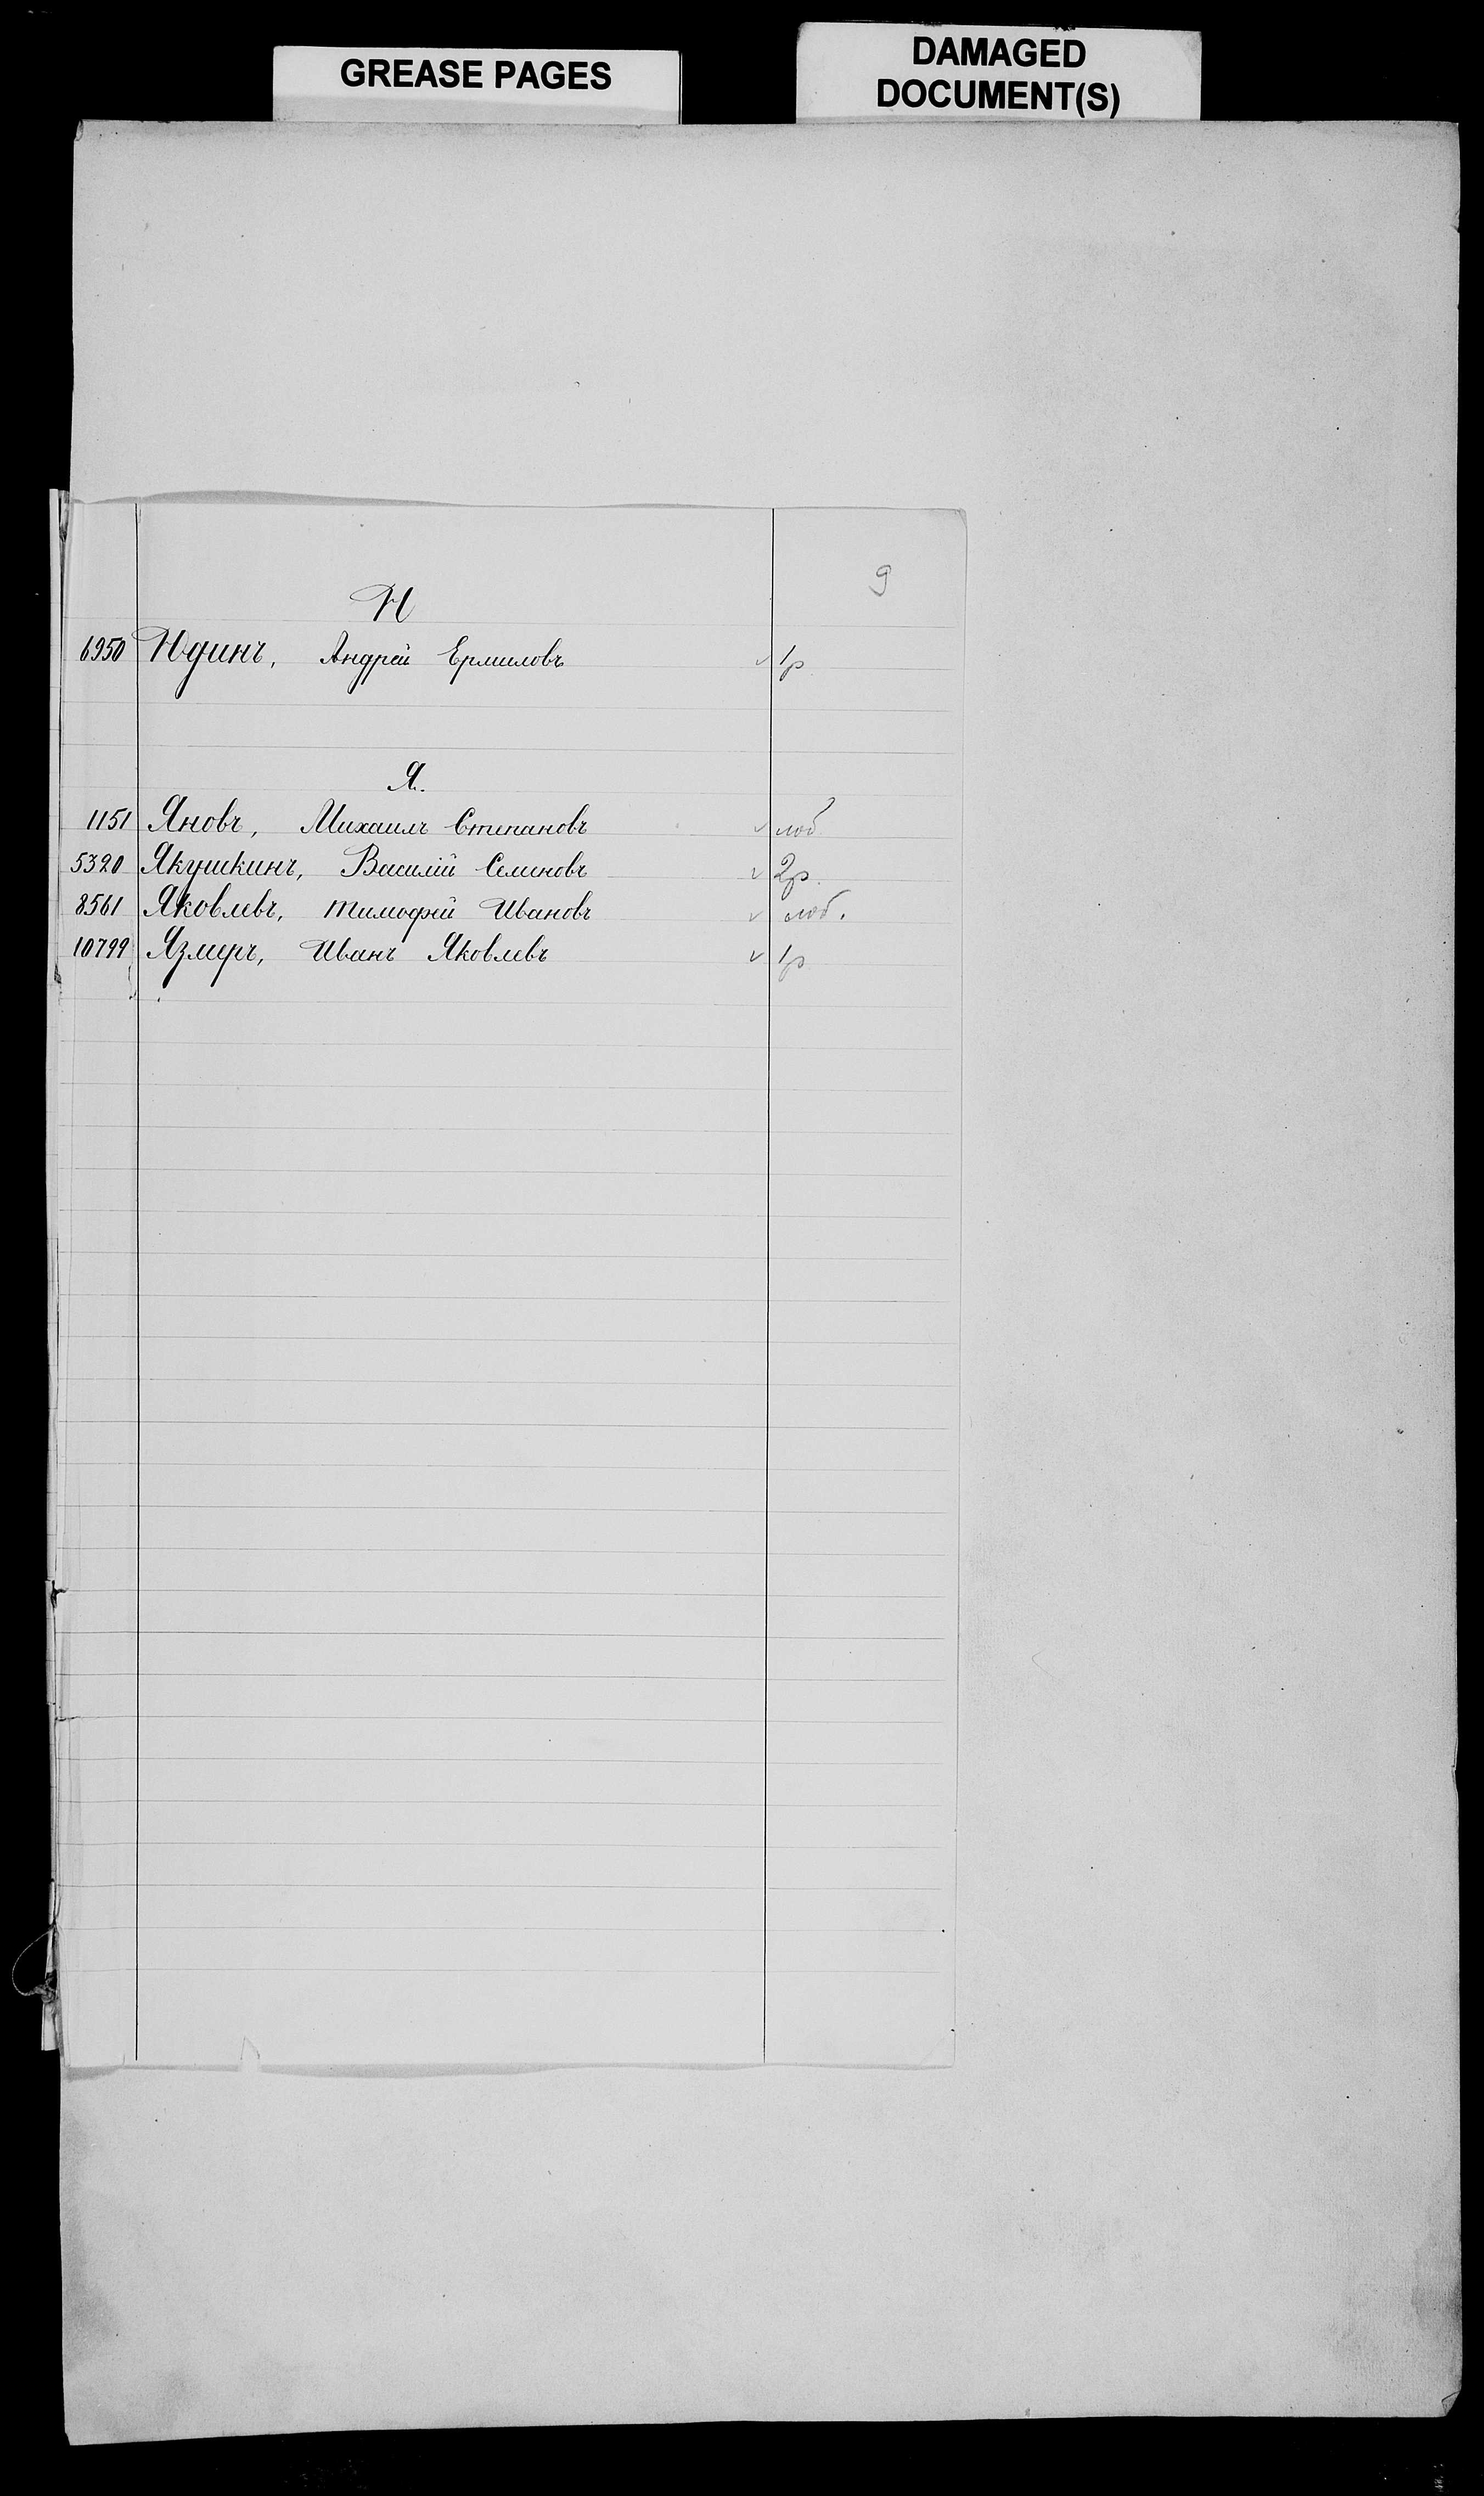 GREASE PAGES
DAMAGED
DOCUMENT(S)
9
Ю
6950 Юдинъ, Андрей Ермиловъ ✓ 1р
Я.
1151 Яновъ, Михаилъ Степановъ ✓ моб
5320 Якушкинъ, Василій Семеновъ ✓ 2р.
8561 Яковлевъ, Тимофей Ивановъ ✓ моб.
10799 Иванъ Яковлевъ ✓ 1р